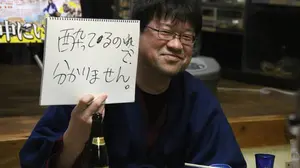 酔っているので、
分かりません。